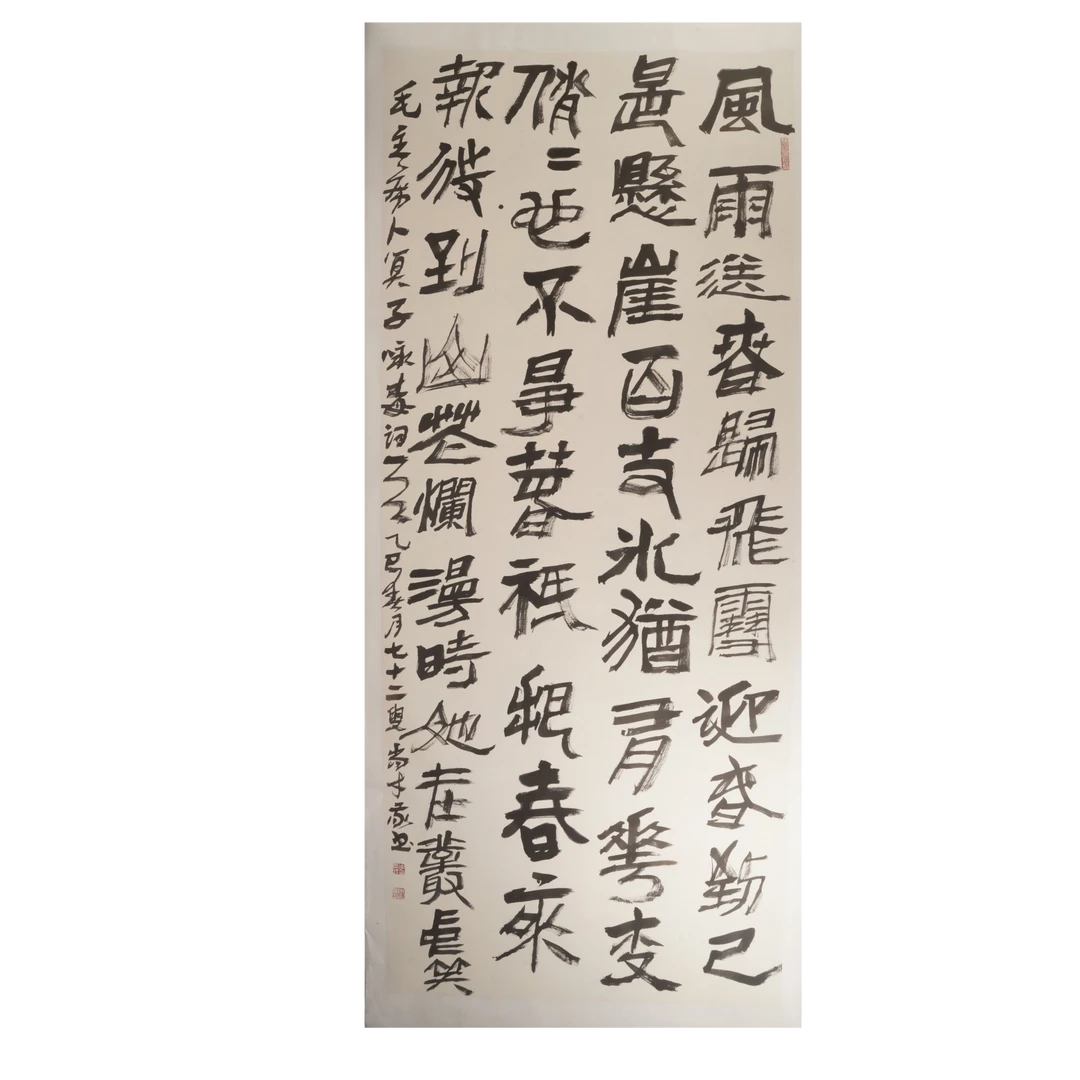 風雨送春歸飛雪迎春到已
是懸崖百丈冰猶有花枝
俏俏也不爭春祇把春來
報待到山花爛漫時她在叢中笑
毛主席卜算子咏梅词一首乙巳春月七十二叟尚才敬书